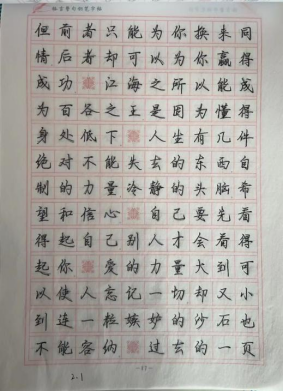 但前者只能为你换来同
情后者却可以为你赢得
成功 江海之所以能成
为百谷之王是因为懂得
身处低下 人生有几件
绝对不能失去的东西自
制的力量冷静的头脑希
望和信心 自己要先看
得起自己别人才会看得
起你 爱的力量大到可
以使人忘记一切却又小
到连一粒嫉妒的沙石也
不能容纳 过去的一页
2.1
-17-